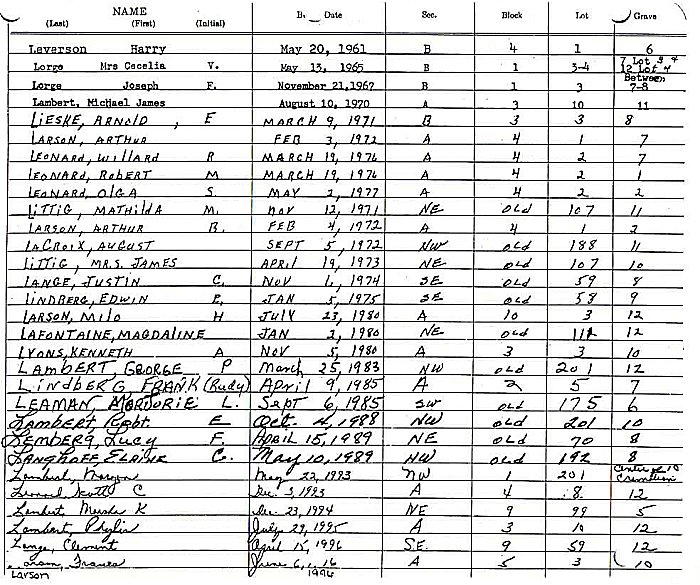 NAME B. Date Sec. Block Lot Grave
(Last) (First) (Initial)
Leverson Harry May 20, 1961 B 4 1 6
Lorge Mrs Cecelia V. May 13, 1965 B 1 3-4 7 Lot 3 & 12 Lot 4
Lorge Joseph F. November 21, 1967 B 1 3 Between 7-8
Lambert, Michael James August 10, 1970 A 3 10 11
LIESKE, ARNOLD, E MARCH 9, 1971 B 3 3 8
LARSON, ARTHUR FEB 3, 1972 A 4 1 7
LEONARD, WILLARD R MARCH 19, 1976 A 4 2 7
LEONARD, ROBERT M MARCH 19, 1976 A 4 2 1
LEONARD, OLGA S. MAY 2, 1977 A 4 2 2
LITTIG, MATHILDA M. NOV 12, 1971 NE OLD 107 11
LARSON, ARTHUR B. FEB 4, 1972 A 4 1 2
LACROIX, AUGUST SEPT 5, 1972 NW OLD 188 11
LITTIG, MRS. JAMES APRIL 19, 1973 NE OLD 107 10
LANGE, JUSTIN C. NOV 1, 1974 SE OLD 59 8
LINDBERG, EDWIN P. JAN 5, 1975 SE OLD 58 9
LARSON, MILO H JULY 23, 1980 A 10 3 12
LAFONTAINE, MAGDALINE JAN 2, 1980 NE OLD 112 12
LYONS, KENNETH A NOV 5, 1980 A 3 3 10
LAMBERT, GEORGE P March 25, 1983 NW OLD 201 12
LINDBERG, FRANK (Rudy) April 9, 1985 A 2 5 7
LEAMAN, MARJORIE L. Sept 6, 1985 SW OLD 175 6
Lambert, Robt. E Oct. 4, 1988 NW OLD 201 10
LEMBERG, Lucy F. APRIL 15, 1989 NE OLD 70 8
LANGHOFF, ELAINE C. May 10, 1989 NW OLD 192 8
Lambert, May 22, 1993 NW 1 201 Center of 10
Leonard, Scott C Dec. 3, 1993 A 4 8 12
Lambert, K Dec 23, 1994 NE 9 99 5
Lambert, Phylis July 29, 1995 A 3 10 12
Lange, Clement April 15, 1996 S.E. 9 59 12
Frances June 6, 1996 A 5 3 10
Larson